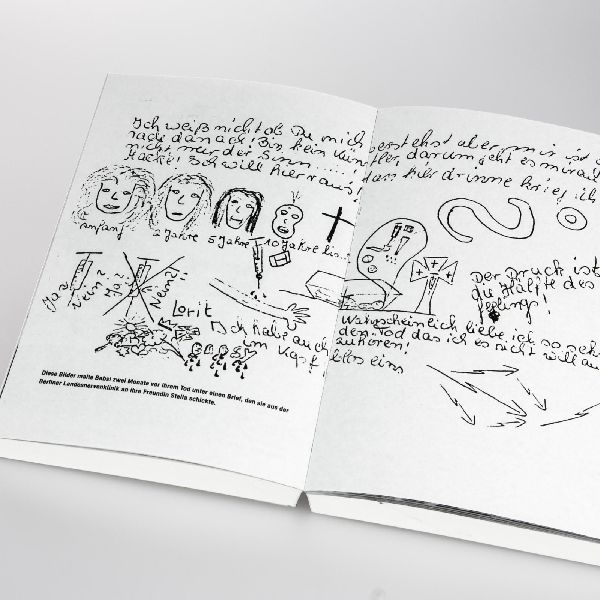 Ich weiß nicht ob Du mich verstehst aber mir ist
nach danach! Bin kein Künstler, darum geht es mir auch
nicht, nur der Sinn ....
Hacki! Ich will hier raus! denn hier drinne krieg ich
anfang 2 Jahre 5 Jahre 10 Jahre
Ja? Nein? Ja? Nein?!
Der Druck ist
die Hälfte des
feelings!
Lorit
Ich habe auch
im Kopf
Warscheinlich liebe ich so sehr
den Tod das ich es nicht will auf
zuhören!
eins
Diese Bilder malte Babsi zwei Monate vor ihrem Tod unter einen Brief, den sie aus der
Berliner Landesnervenklinik an ihre Freundin Stella schickte.